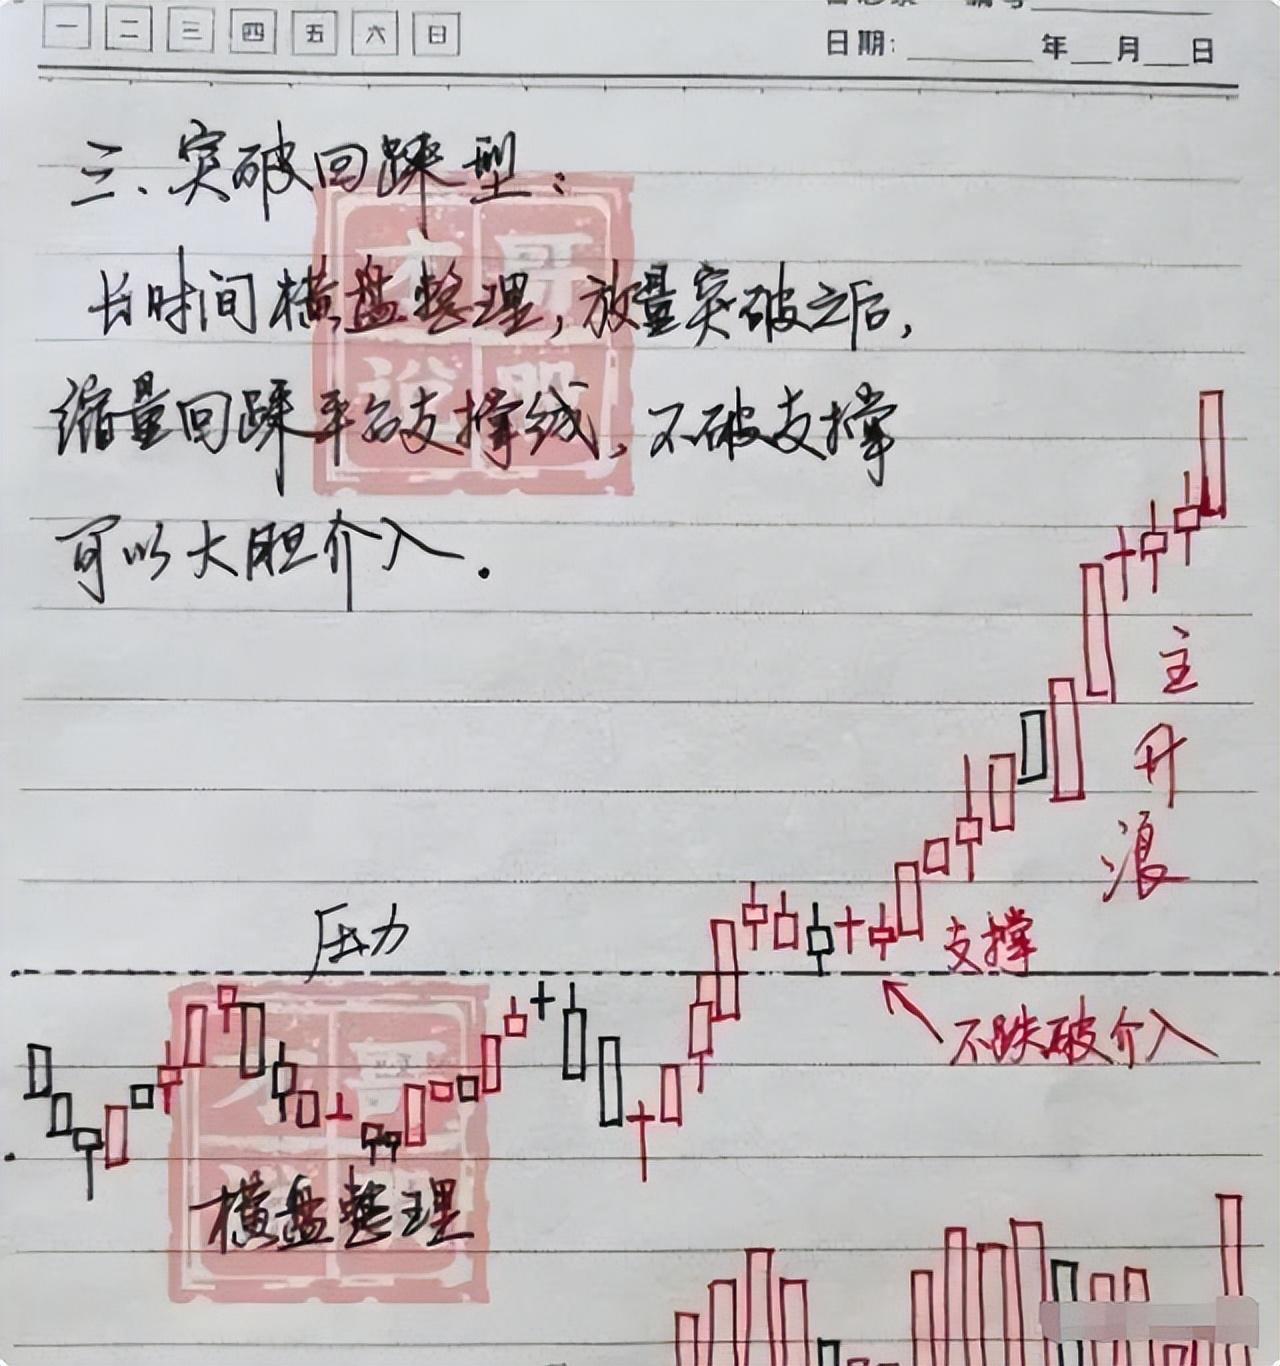 一 二 三 四 五 六 日
日期: 年 月 日
三、突破回踩型：
长时间横盘整理，放量突破之后，
缩量回踩平台支撑线，不破支撑
可以大胆介入．
主升浪
压力
支撑
不跌破介入
横盘整理